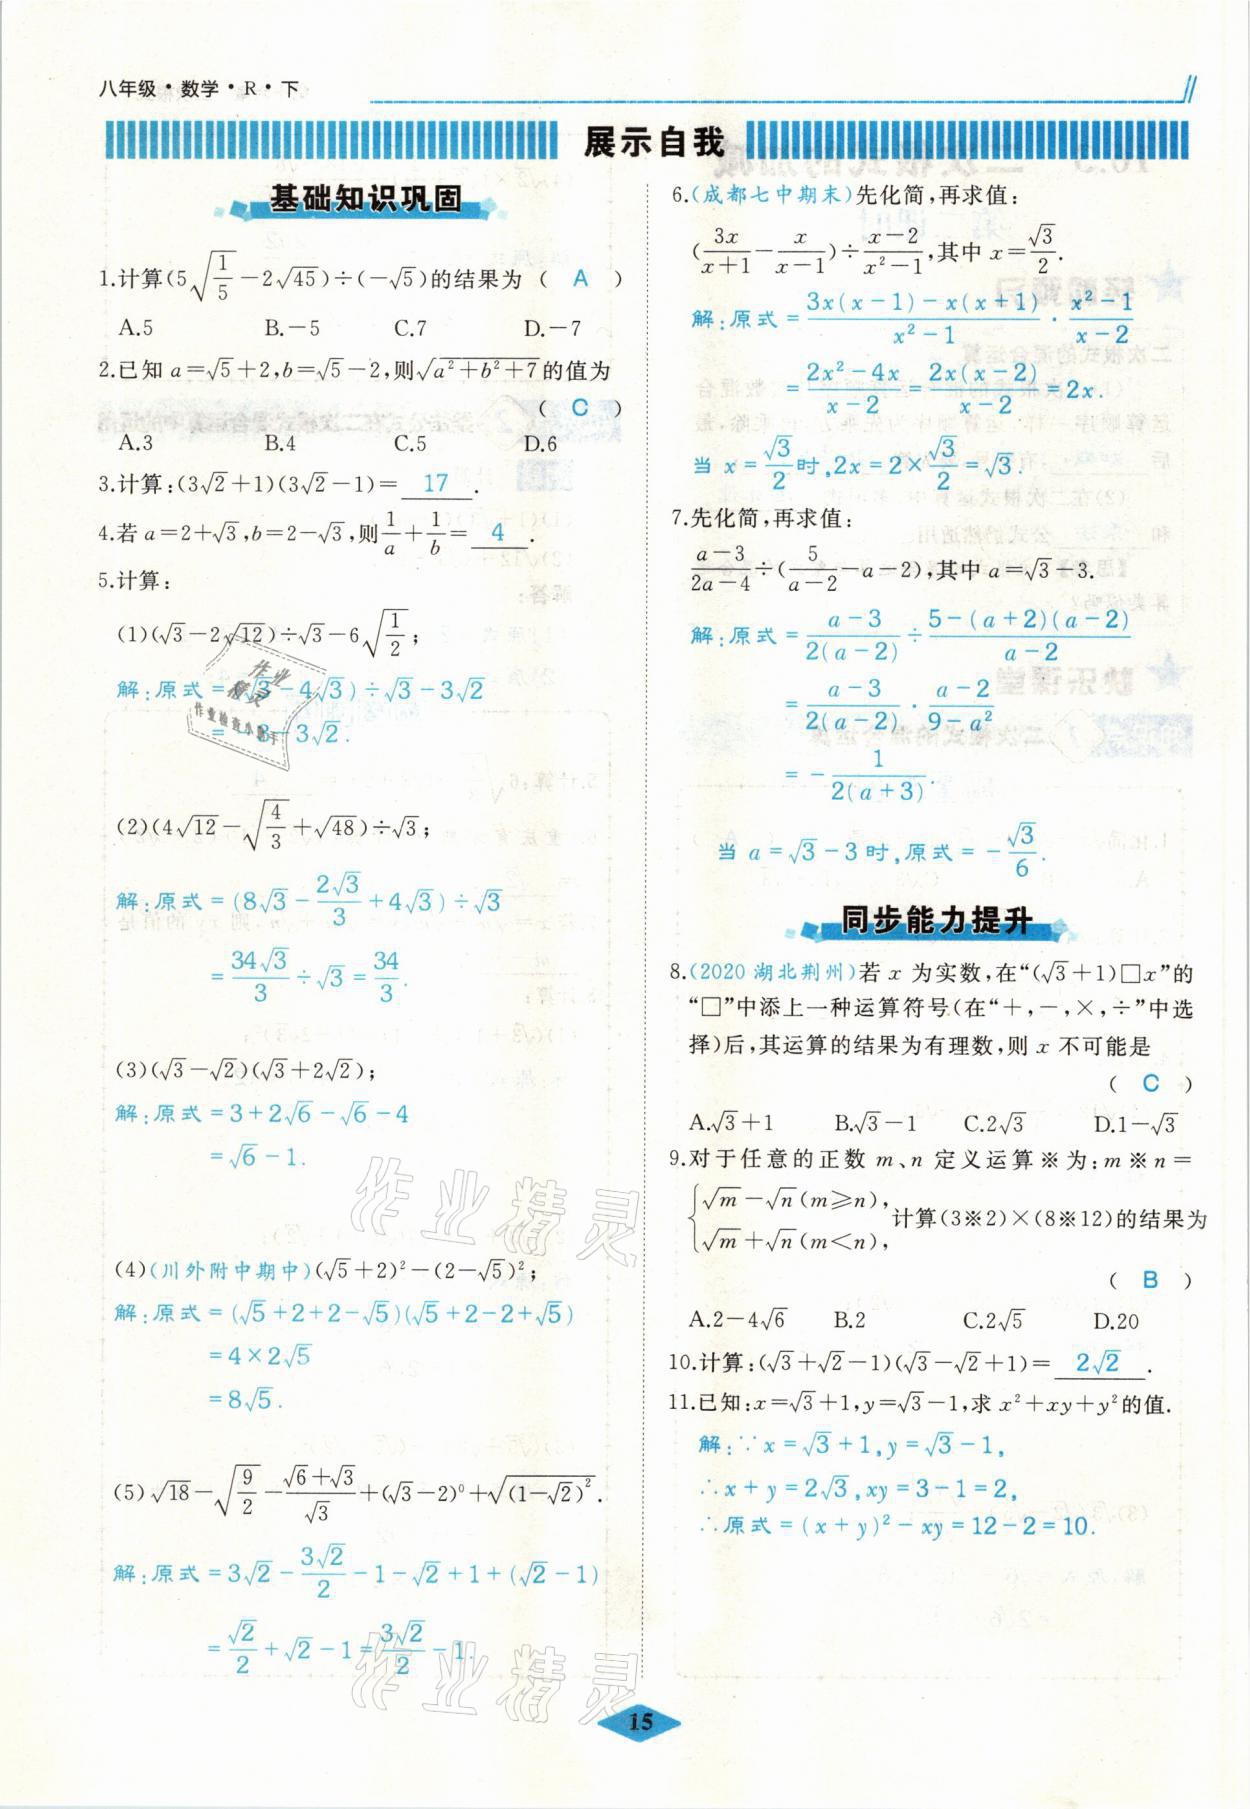 八年级·数学·R·下
展示自我
基础知识巩固
1.计算(5√(1/5)－2√45)÷(－√5)的结果为 ( A )
A.5 B.－5 C.7 D.－7
2.已知 a＝√5＋2,b＝√5－2,则√(a²＋b²＋7)的值为
( C )
A.3 B.4 C.5 D.6
3.计算:(3√2＋1)(3√2－1)＝ 17 .
4.若 a＝2＋√3,b＝2－√3,则1/a＋1/b＝ 4 .
5.计算:
(1)(√3－2√12)÷√3－6√(1/2);
解:原式＝(√3－4√3)÷√3－3√2
＝－3－3√2.
(2)(4√12－√(4/3)＋√48)÷√3;
解:原式＝(8√3－2√3/3＋4√3)÷√3
＝34√3/3÷√3＝34/3.
(3)(√3－√2)(√3＋2√2);
解:原式＝3＋2√6－√6－4
＝√6－1.
(4)(川外附中期中)(√5＋2)²－(2－√5)²;
解:原式＝(√5＋2＋2－√5)(√5＋2－2＋√5)
＝4×2√5
＝8√5.
(5)√18－√(9/2)－(√6＋√3)/√3＋(√3－2)⁰＋√((1－√2)²).
解:原式＝3√2－3√2/2－1－√2＋1＋(√2－1)
＝√2/2＋√2－1＝3√2/2－1.
6.(成都七中期末)先化简,再求值:
(3x/(x＋1)－x/(x－1))÷(x－2)/(x²－1),其中 x＝√3/2.
解:原式＝(3x(x－1)－x(x＋1))/(x²－1)·(x²－1)/(x－2)
＝(2x²－4x)/(x－2)＝2x(x－2)/(x－2)＝2x.
当 x＝√3/2时,2x＝2×√3/2＝√3.
7.先化简,再求值:
(a－3)/(2a－4)÷(5/(a－2)－a－2),其中 a＝√3－3.
解:原式＝(a－3)/(2(a－2))÷(5－(a＋2)(a－2))/(a－2)
＝(a－3)/(2(a－2))·(a－2)/(9－a²)
＝－1/(2(a＋3)).
当 a＝√3－3时,原式＝－√3/6.
同步能力提升
8.(2020 湖北荆州)若 x 为实数,在“(√3＋1)□x”的
“□”中添上一种运算符号(在“＋,－,×,÷”中选
择)后,其运算的结果为有理数,则 x 不可能是
( C )
A.√3＋1 B.√3－1 C.2√3 D.1－√3
9.对于任意的正数 m、n 定义运算※为:m※n＝
{√m－√n(m≥n),
√m＋√n(m＜n), 计算(3※2)×(8※12)的结果为
( B )
A.2－4√6 B.2 C.2√5 D.20
10.计算:(√3＋√2－1)(√3－√2＋1)＝ 2√2 .
11.已知:x＝√3＋1,y＝√3－1,求 x²＋xy＋y²的值.
解:∵x＝√3＋1,y＝√3－1,
∴x＋y＝2√3,xy＝3－1＝2,
∴原式＝(x＋y)²－xy＝12－2＝10.
作业精灵
作业检查小助手
作业精灵
作业精灵
15